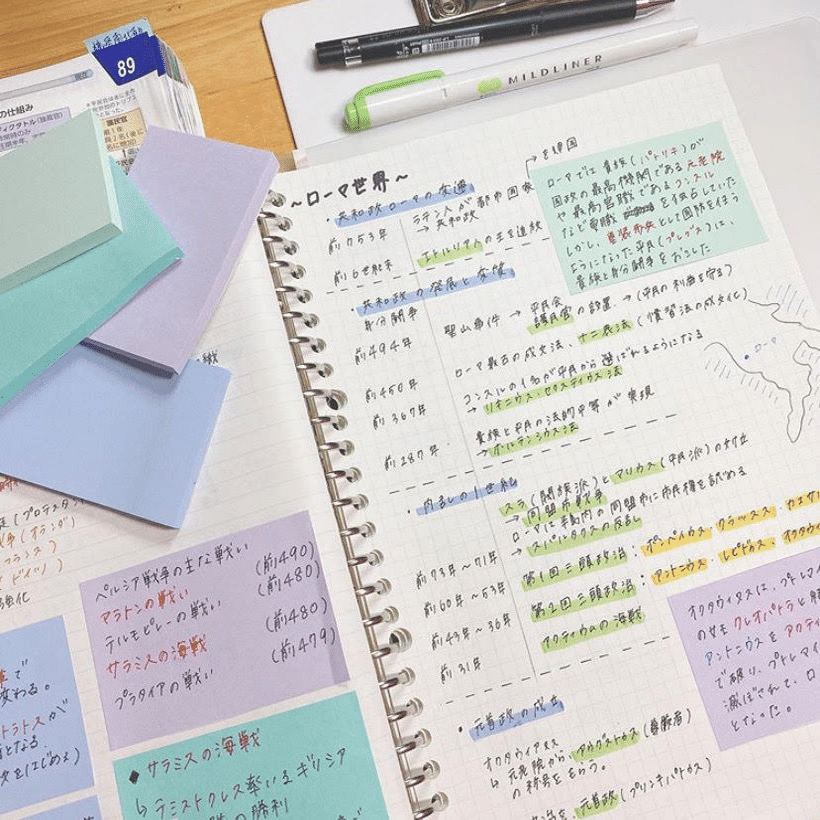 89
の仕組み
ディクタトル(独裁官)
護民官
MILDLINER
~ローマ世界~
・共和政ローマの変遷
前753年 ラテン人が都市国家
→共和政
前6世紀末 エトルリア人の王を追放
ローマでは貴族(パトリキ)が
国政の最高機関である元老院
や最高官職であるコンスル
など要職を独占していた
しかし、重装歩兵として国防を担う
ようになった平民(プレブス)は、
貴族と身分闘争をおこした
共和政の発展と変質
身分闘争
前494年 聖山事件 → 平民会
護民官の設置 →(平民の利益を守る)
前450年 ローマ最古の成文法、十二表法(慣習法の成文化)
前367年 コンスルの1名が平民から選ばれるようになる
→リキニウス・セクスティウス法
前287年 貴族と平民の法的平等が実現
→ホルテンシウス法
ローマ
・内乱の1世紀
スラ(閥族派)とマリウス(平民派)の対立
→同盟市戦争
ローマは半島内の同盟市に市民権を認める
前73年~71年 →スパルタクスの反乱
前60年~53年 第1回三頭政治:ポンペイウス・クラッスス・カエサ
前43年~36年 第2回三頭政治:アントニウス・レピドゥス・オクタウィ
前31年 アクティウムの海戦
オクタウィアヌスは、プトレマイ
の女王クレオパトラと
アントニウスをアクティ
で破り、プトレマイ
滅ぼされて、ロ
となった。
・元首政の成立
オクタウィアヌス
↳元老院から、アウグストゥス(尊厳者)
の称号をもらう。
元首政(プリンキパトゥス)
(プロテスタン
(オランダ)
フランス
ドイツ)
強化
ペルシア戦争の主な戦い
マラトンの戦い (前490)
テルモピレーの戦い (前480)
サラミスの海戦 (前480)
プラタイアの戦い (前479)
変わる。
となる
をはじめる)
◆サラミスの海戦
↳テミストクレス率いるギリシア
の勝利